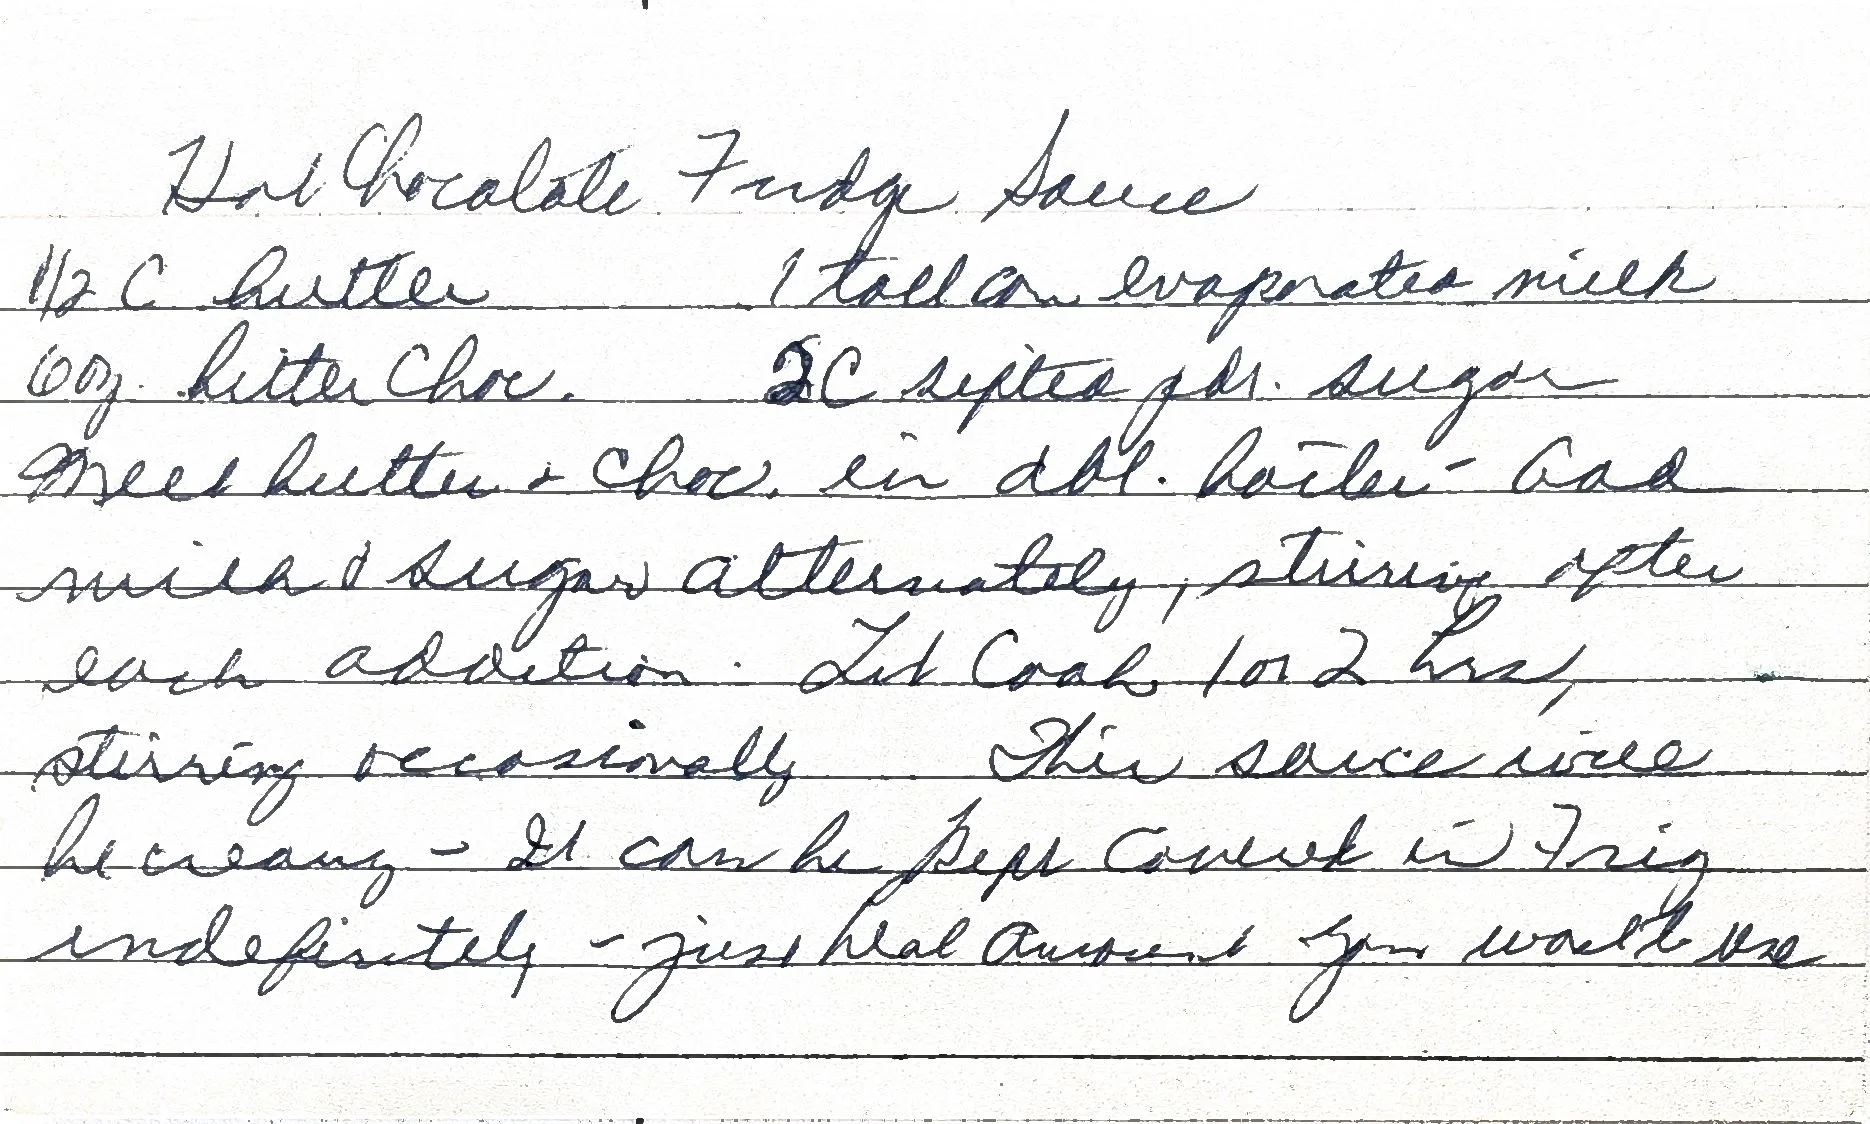 Hot Chocolate Fudge Sauce
1/2 C butter 1 tall can evaporated milk
6 oz. bitter Choc. 2C sifted pdr. sugar
Melt butter & Choc. in dbl. boiler - Add
milk & sugar alternately, stirring after
each addition. Let Cook 1 or 2 hrs,
stirring occasionally This sauce will
be creamy - It can be kept Covered in Frig
indefinitely - just heat Amount you would use